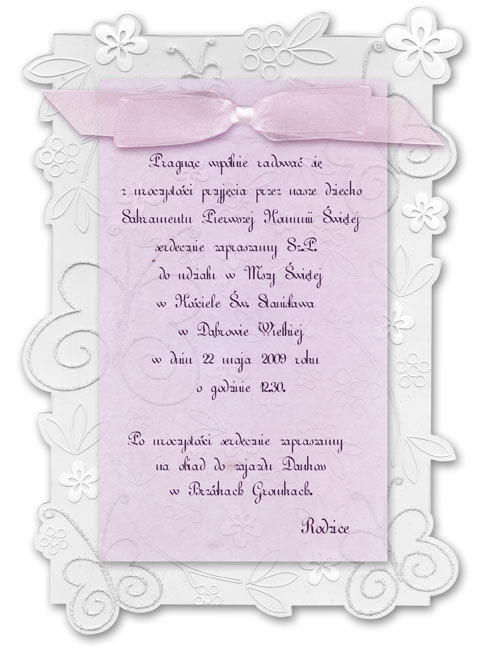 Pragnąc wpólnie radować się
z uroczystości przyjęcia przez nasze dziecko
Sakramentu Pierwszej Komunii Świętej
serdecznie zapraszamy Sz.P.
do udziału w Mszy Świętej
w Kościele Św. Stanisława
w Dąbrowie Wielkiej
w dniu 22 maja 2009 roku
o godzinie 12.30.
Po uroczystości serdecznie zapraszamy
na obiad do zajazdu
w
Rodzice